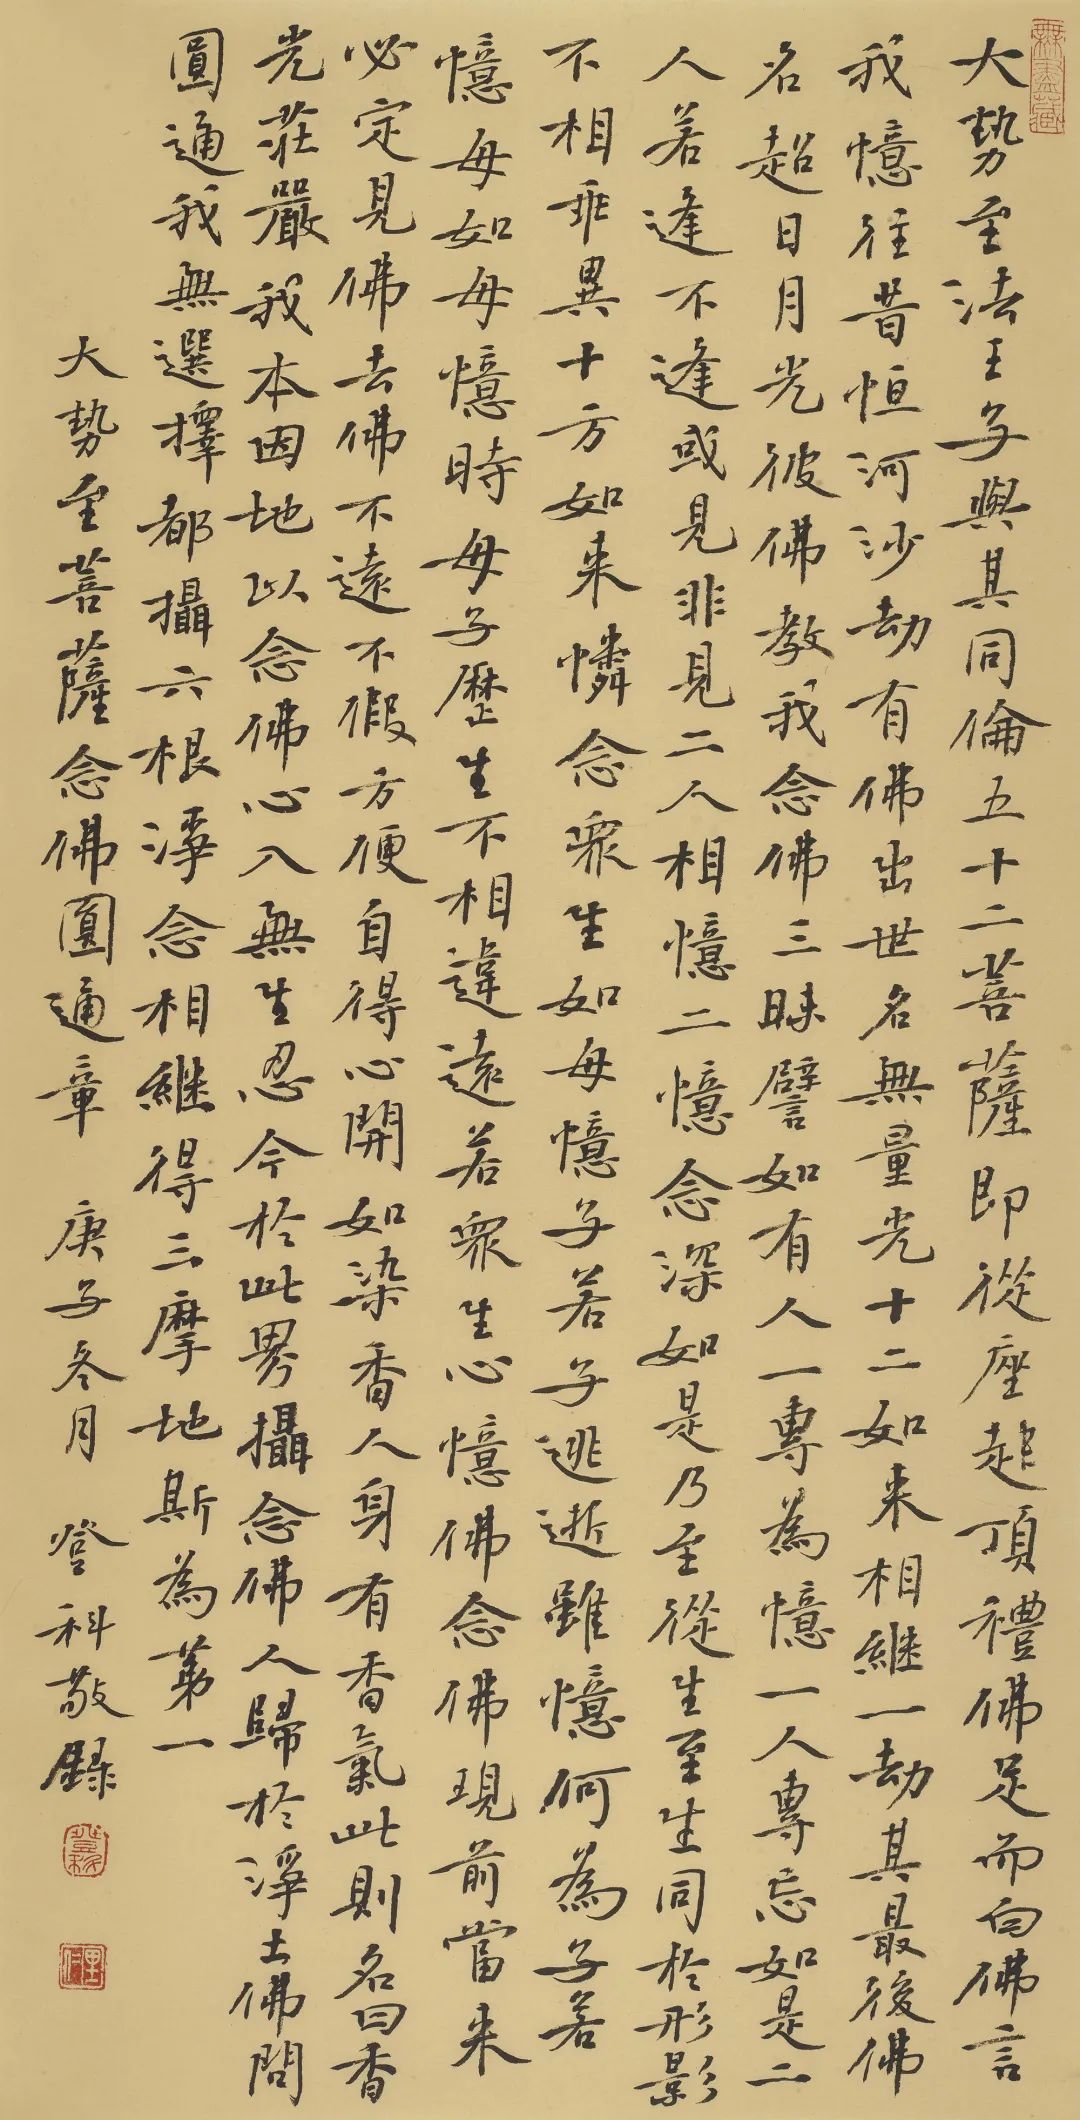 無盡藏
大勢至法王子與其同倫五十二菩薩即從座起頂禮佛足而白佛言
我憶往昔恒河沙劫有佛出世名無量光十二如来相繼一劫其最後佛
名超日月光彼佛教我念佛三昧譬如有人一專為憶一人專忘如是二
人若逢不逢或見非見二人相憶二憶念深如是乃至從生至生同於形影
不相乖異十方如来憐念眾生如母憶子若子逃逝雖憶何為子若
憶母如母憶時母子歷生不相違遠若眾生心憶佛念佛現前當来
必定見佛去佛不遠不假方便自得心開如染香人身有香氣此則名曰香
光莊嚴我本因地以念佛心入無生忍今於此界攝念佛人歸於淨土佛問
圓通我無選擇都攝六根淨念相繼得三摩地斯為第一
大勢至菩薩念佛圓通章 庚子冬月 登科敬錄